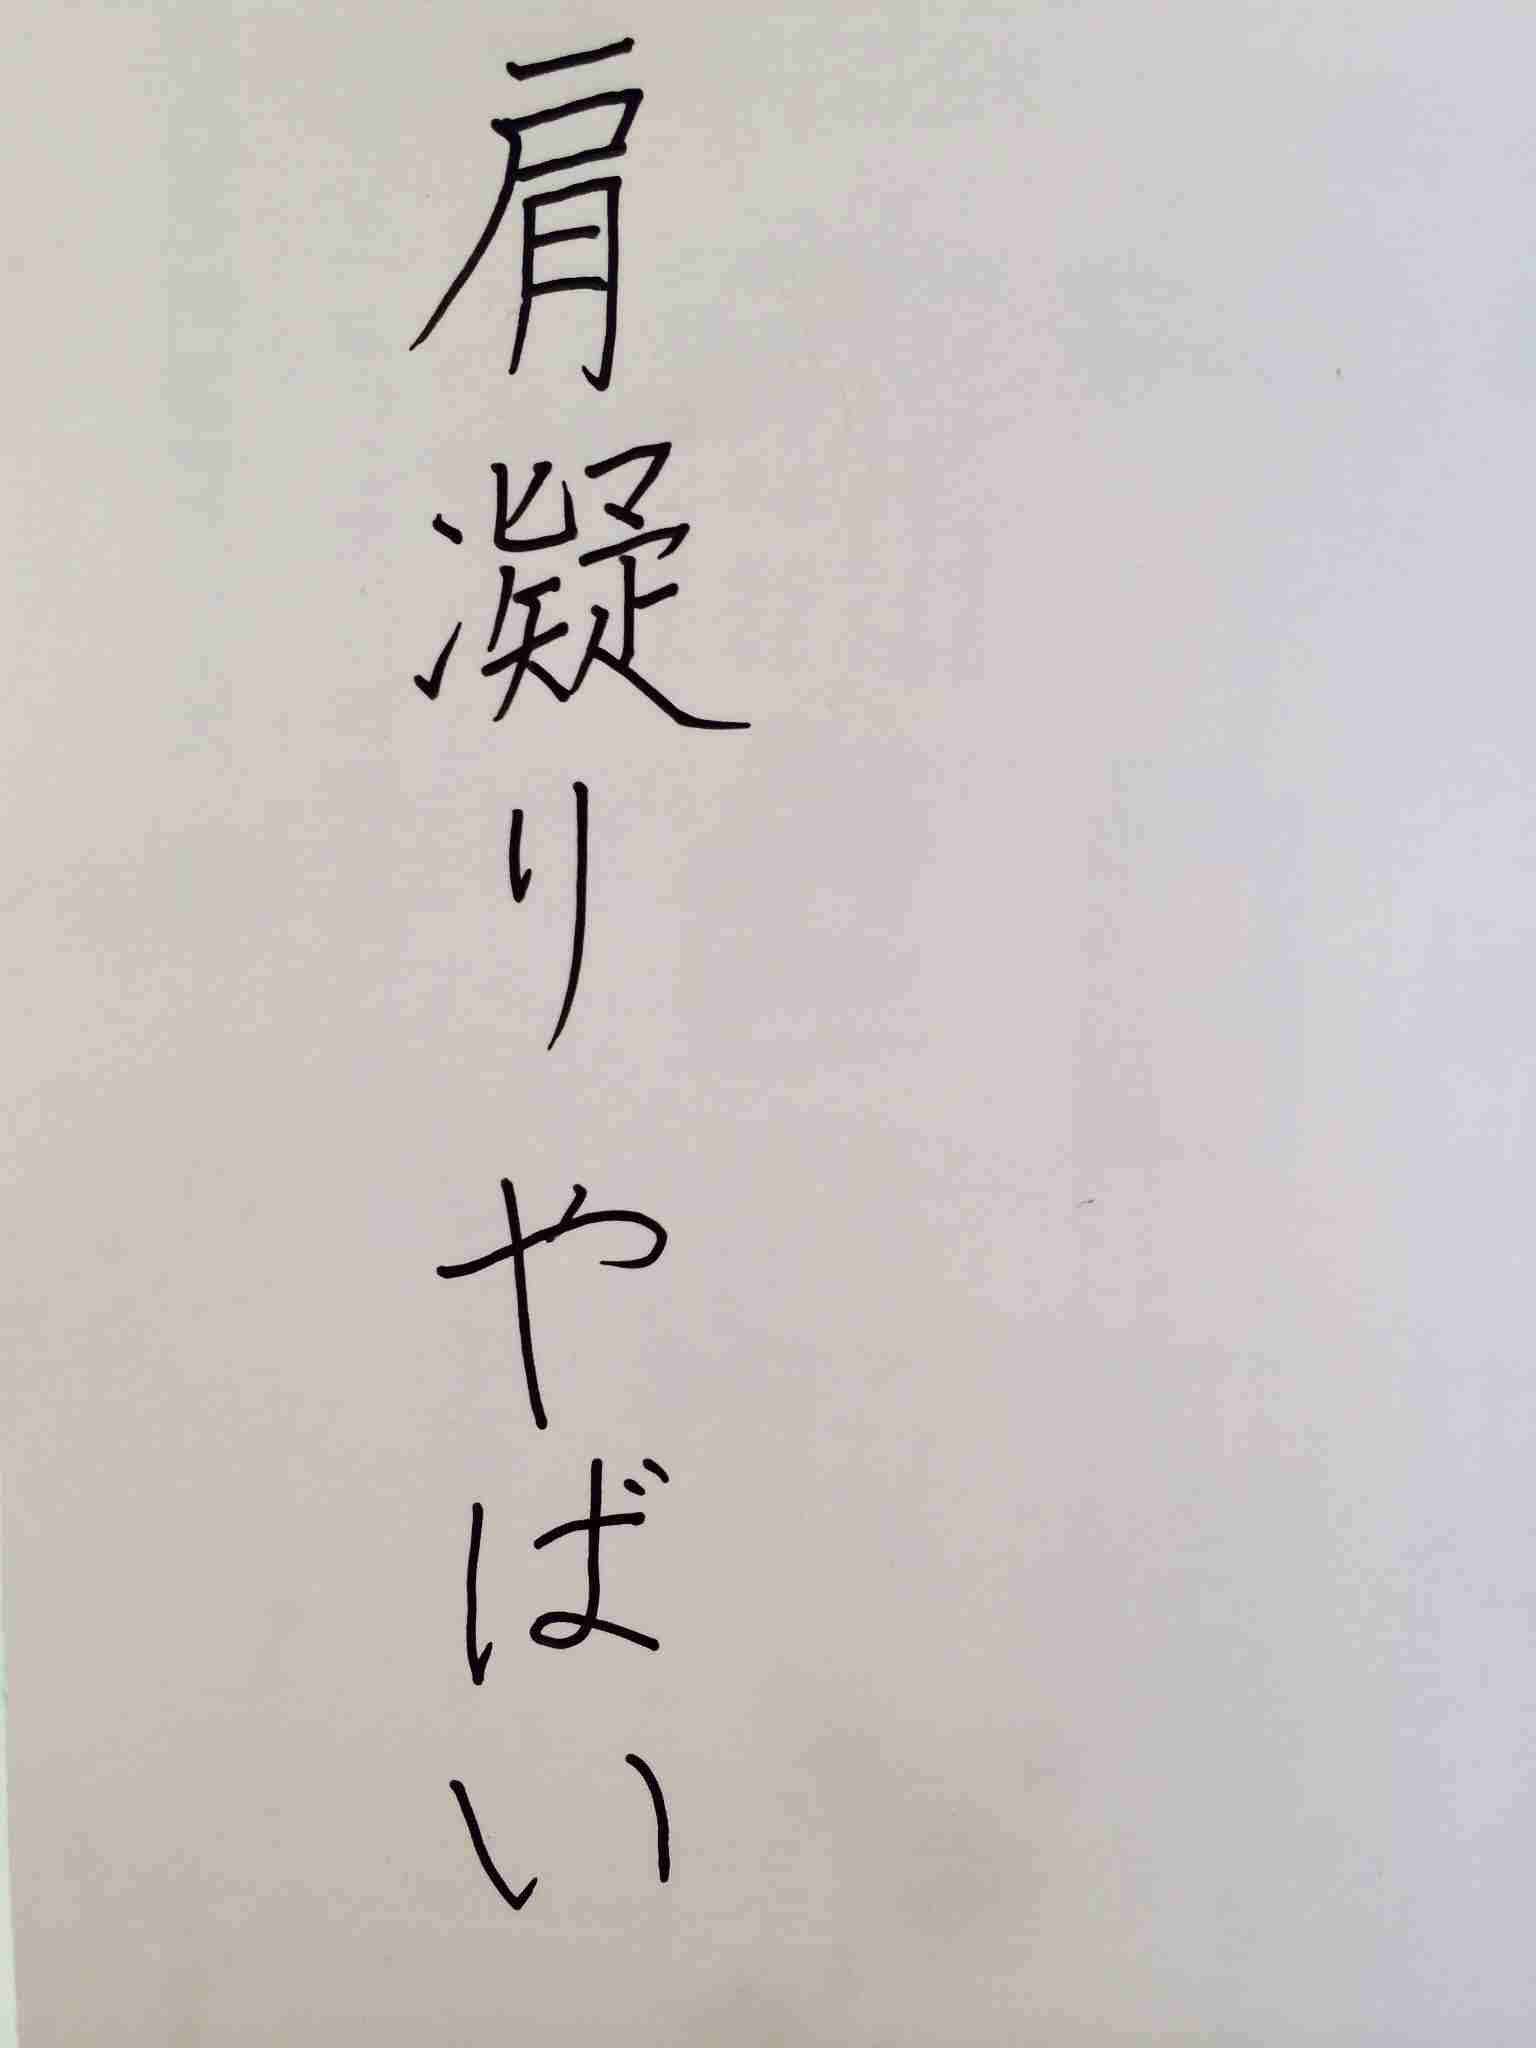 肩凝りやばい